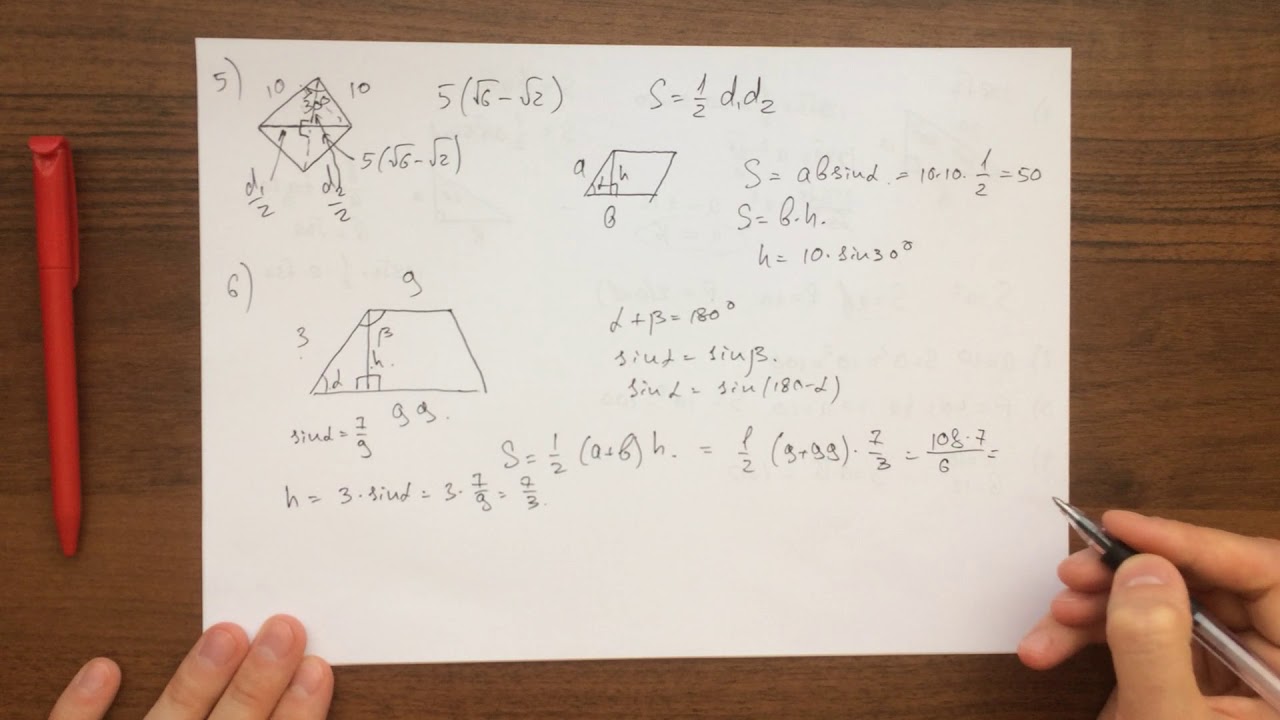 5)
10 10
30°
5(√6 − √2)
S = 1/2 d₁d₂
5(√6 − √2)
d₁/2 d₂/2
a h α
b
S = ab sinα. = 10·10 · 1/2 = 50
S = b·h.
h = 10·sin30°
6)
9
3 β h. α
99.
sinα = 7/9
α + β = 180°
sinα = sinβ.
sinα = sin(180-α)
S = 1/2 (a+b) h. = 1/2 (9+99) · 7/3 = 108·7/6 =
h = 3·sinα = 3· 7/9 = 7/3.